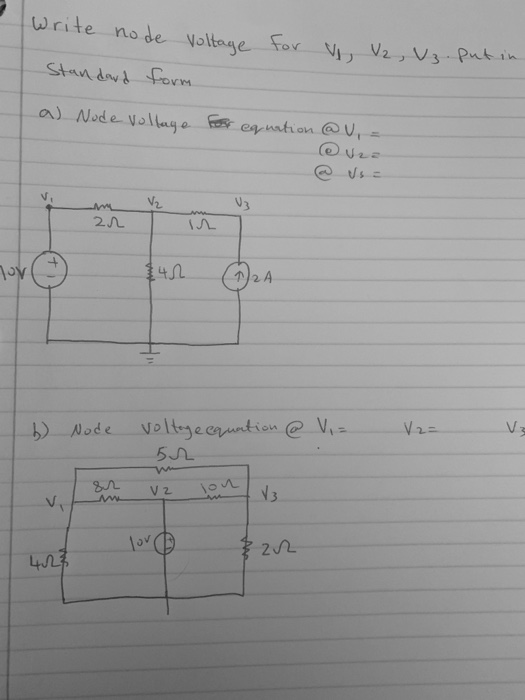 Write node voltage for V1, V2, V3. Put in
Standard form
a) Node voltage equation @ V1 =
@ V2 =
@ V3 =
V1
V2
V3
2Ω
1Ω
10V
+
-
4Ω
↑
2A
b) Node voltage equation @ V1 = V2 = V3
5Ω
8Ω
V2
10Ω
V1
V3
10V
+
4Ω
2Ω